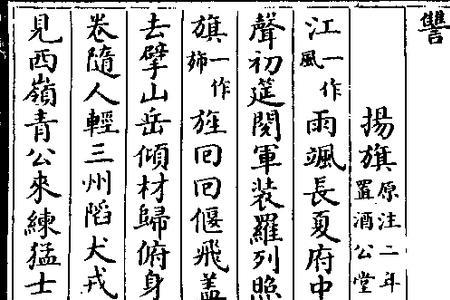 讐
揚旗原注二年置酒公堂
江一作風雨颯長夏府中
聲初筵閱軍裝羅列照
旗一作斾旌回回偃飛蓋
去擘山岳傾材歸俯身
卷隨人輕三州䧟犬戎
見西嶺青公來練猛士